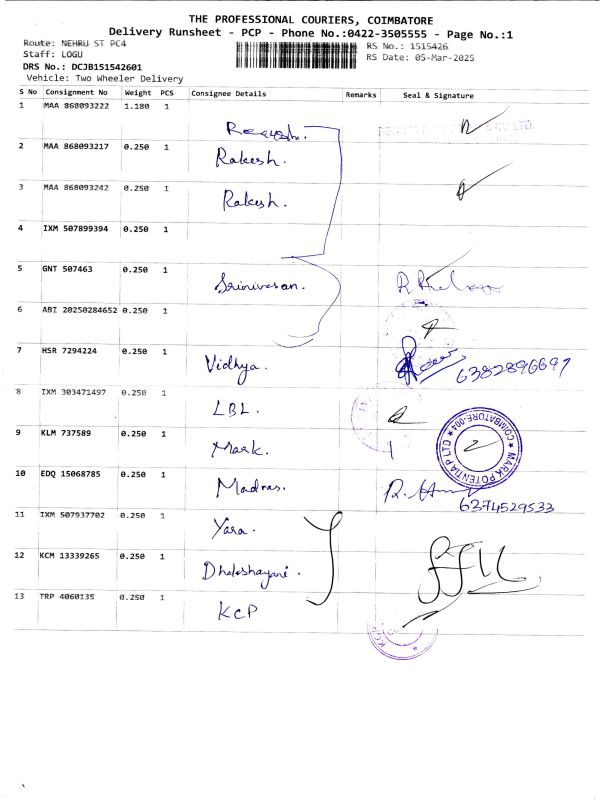 THE PROFESSIONAL COURIERS, COIMBATORE
Delivery Runsheet - PCP - Phone No.:0422-3505555 - Page No.:1
Route: NEHRU ST PC4
RS No.: 1515426
Staff: LOGU
RS Date: 05-Mar-2025
DRS No.: DCJB151542601
Vehicle: Two Wheeler Delivery
S No Consignment No Weight PCS Consignee Details Remarks Seal & Signature
1 MAA 868093222 1.180 1
2 MAA 868093217 0.250 1 Rakesh.
3 MAA 868093242 0.250 1 Rakesh.
4 IXM 507899394 0.250 1
5 GNT 507463 0.250 1 Srinivasan.
6 ABI 20250284652 0.250 1
7 HSR 7294224 0.250 1 Vidhya. 6382896697
8 IXM 303471497 0.250 1 LBL.
9 KLM 737589 0.250 1 Mark. MARK POTENTIA P LTD COIMBATORE-004
10 EDQ 15068785 0.250 1 Madras. 6374529533
11 IXM 507937702 0.250 1 Yara.
12 KCM 13339265 0.250 1
13 TRP 4060135 0.250 1 KCP